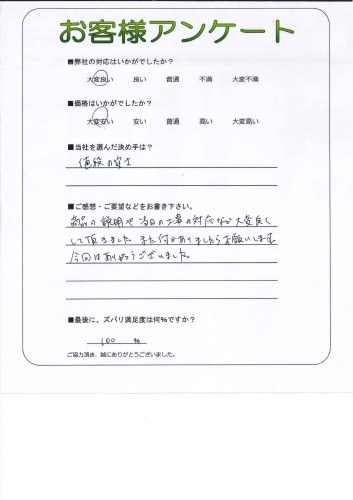 お客様アンケート
■弊社の対応はいかがでしたか?
大変良い 良い 普通 不満 大変不満
■価格はいかがでしたか?
大変安い 安い 普通 高い 大変高い
■当社を選んだ決め手は?
値段の安さ
■ご感想・ご要望などをお書き下さい。
商品の説明や当日の工事の対応など大変良く
して頂きました また何かありましたらお願いします
今回はありがとうございました。
■最後に、ズバリ満足度は何%ですか?
100 %
ご協力頂き、誠にありがとうございました。